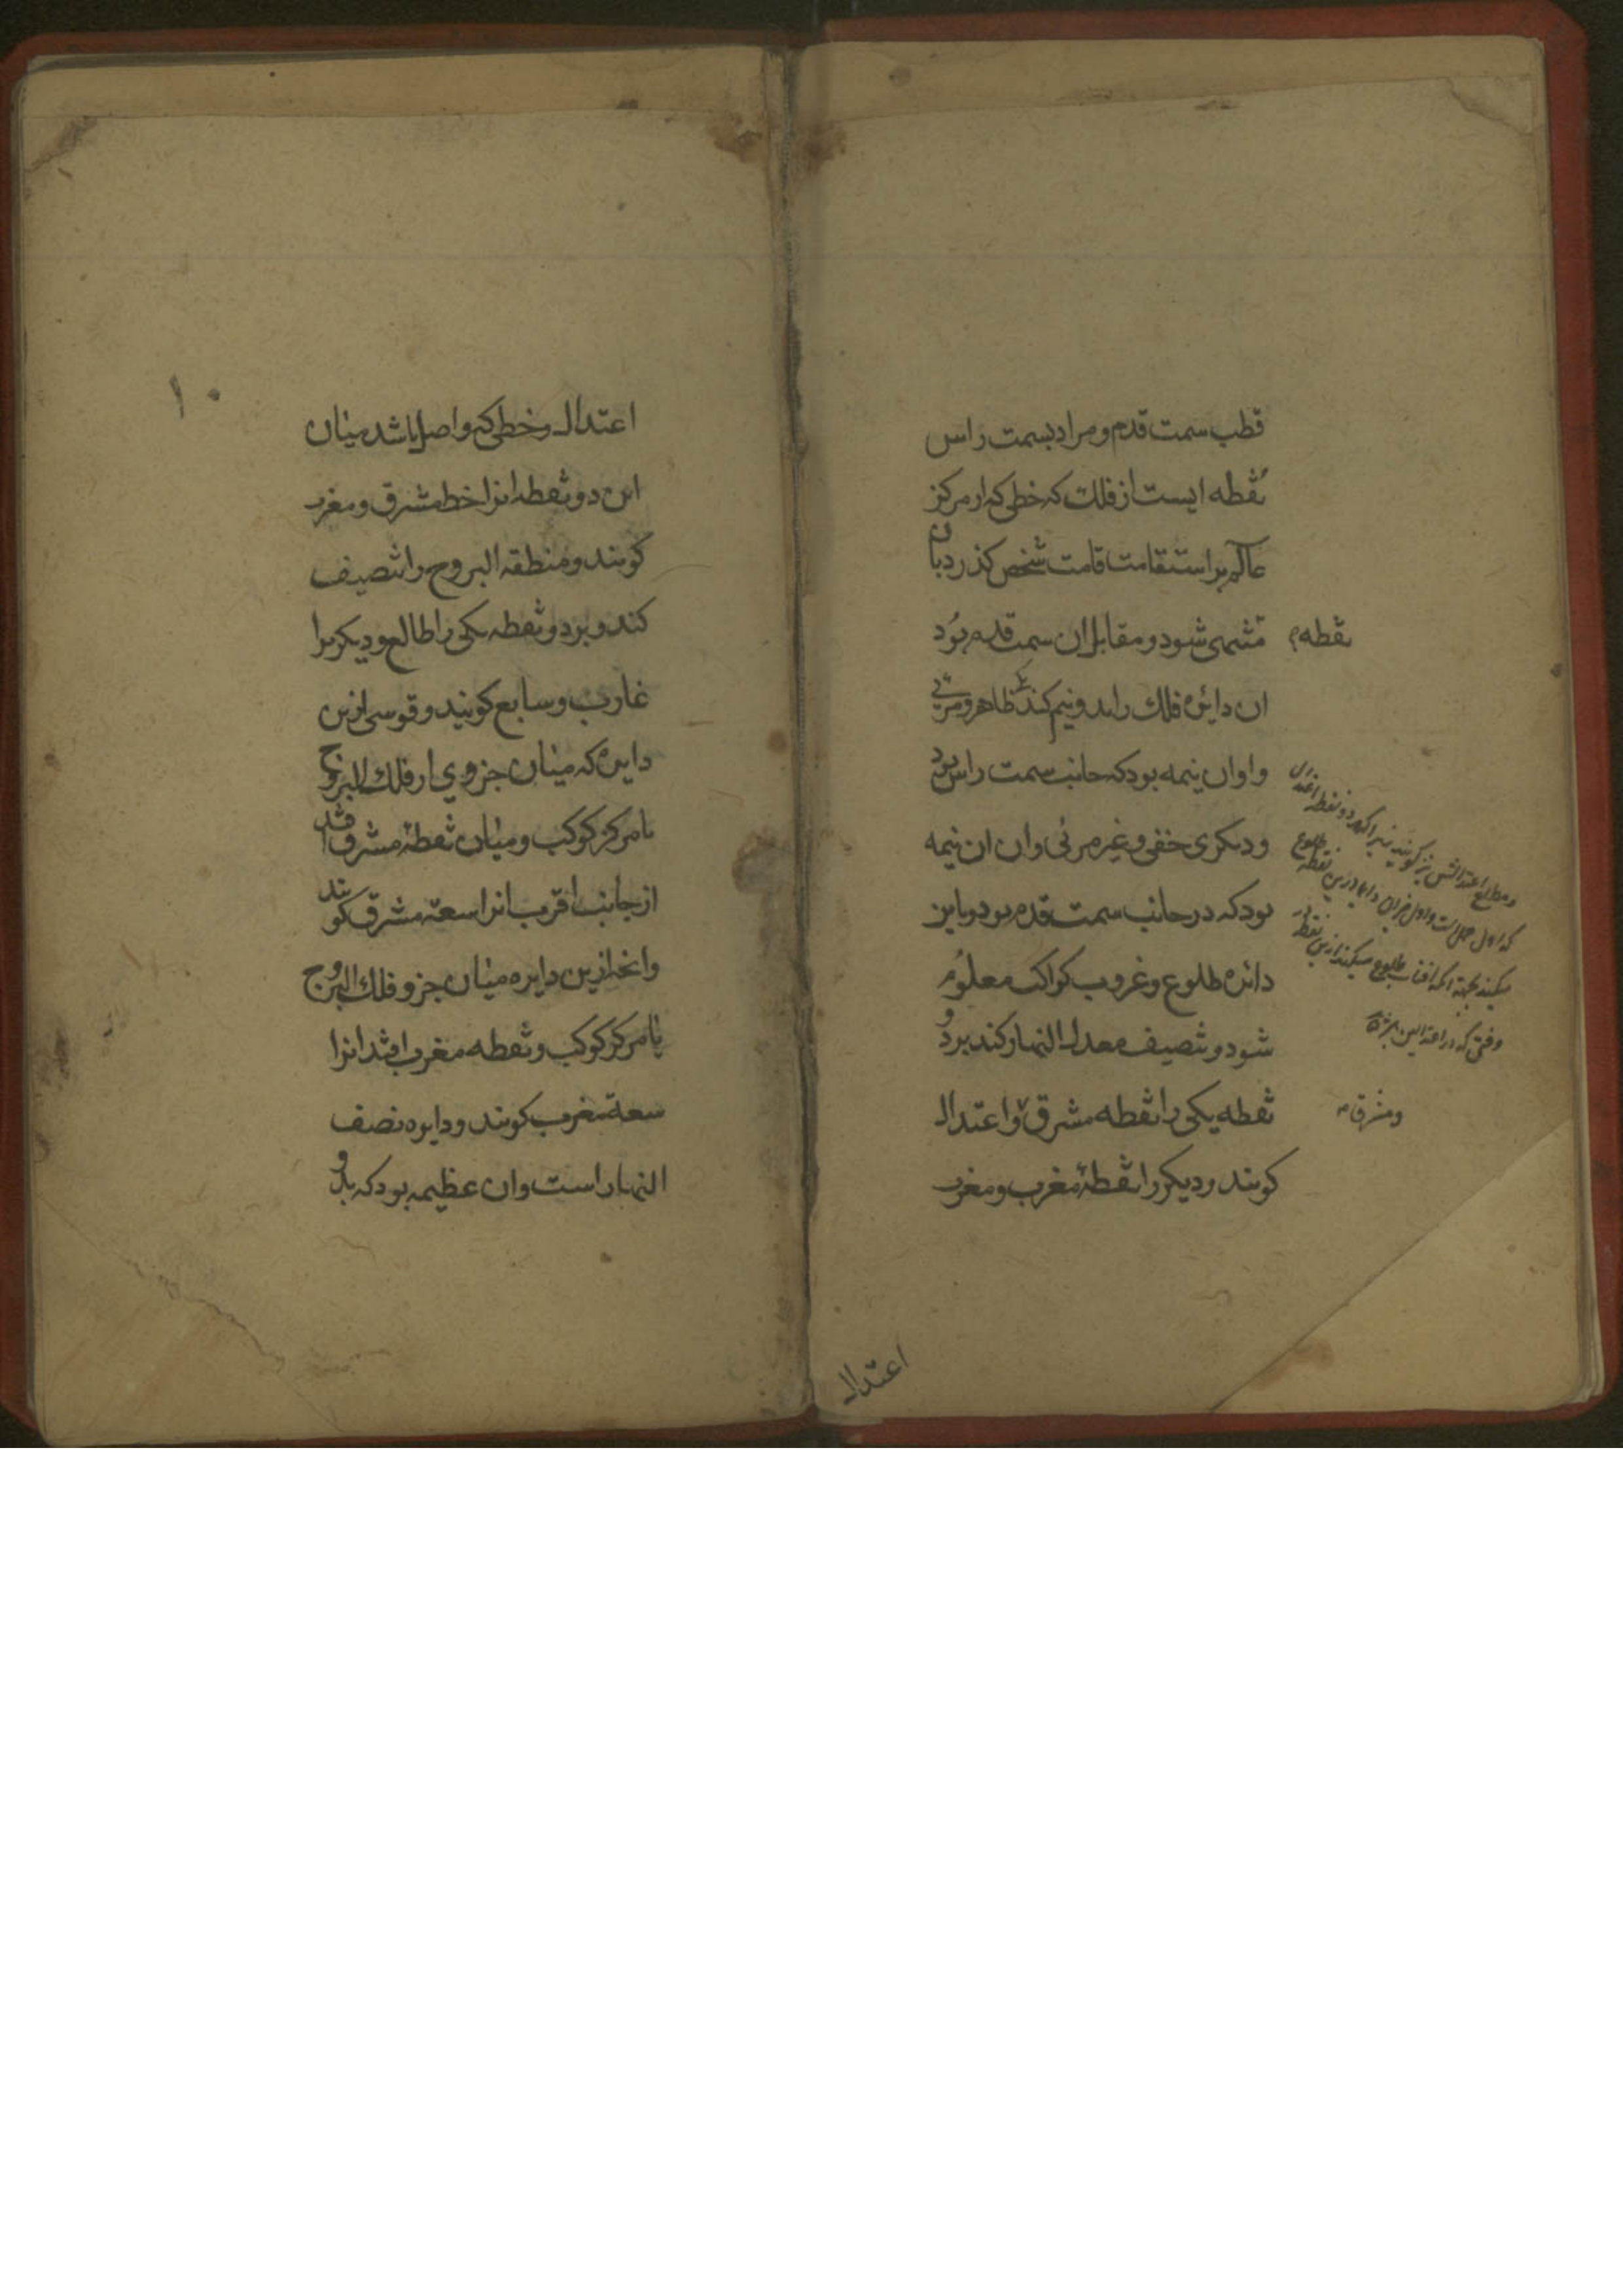 قطب سمت قدم و مراد بسمت راس
نقطه ایست از فلك که خطی که از مرکز
عالم بر استقامت قامت شخص کذرد بان
نقطه
منتهی شود و مقابل ان سمت قدم بود
ان دایره فلك را بدو نیم کند یکی ظاهر و مرئی
و او ان نیمه بود که جانب سمت راس بود
و دیکری خفی و غیر مرئی و ان ان نیمه
بود که در جانب سمت قدم بود و باین
دائره طلوع و غروب کواکب معلوم
شود و تنصیف معدل النهار کند بر دو
نقطه یکی را نقطه مشرق و اعتدال
ومشرق
کویند و دیکر را نقطهٔ مغرب و مغرب
و مطلع اعتدال نیز کویند زیرا که هر دو نقطه اعتدال
که اول حمل است و اول میزان دایما درین نقطه طلوع
میکنند بجهة انکه افتاب طلوع میکند ازین نقطه در
وقتی که در اعتدالین باشد
اعتدال
۱۰
اعتدال و خطی که واصل باشد میان
این دو نقطه انرا خط مشرق و مغرب
کویند و منطقة البروج را تنصیف
کند و بر دو نقطه یکی را طالع و دیکریرا
غارب و سابع کویند و قوسی ازین
دایره که میان جزوی از فلك البروج
یا مرکز کوکب و میان نقطهٔ مشرق افتد
از جانب اقرب انرا سعة مشرق کویند
و انچه ازین دایره میان جزو فلك البروج
یا مرکز کوکب و نقطه مغرب افتد انرا
سعة مغرب کویند و دایره نصف
النهار است و ان عظیمه بود که بدو